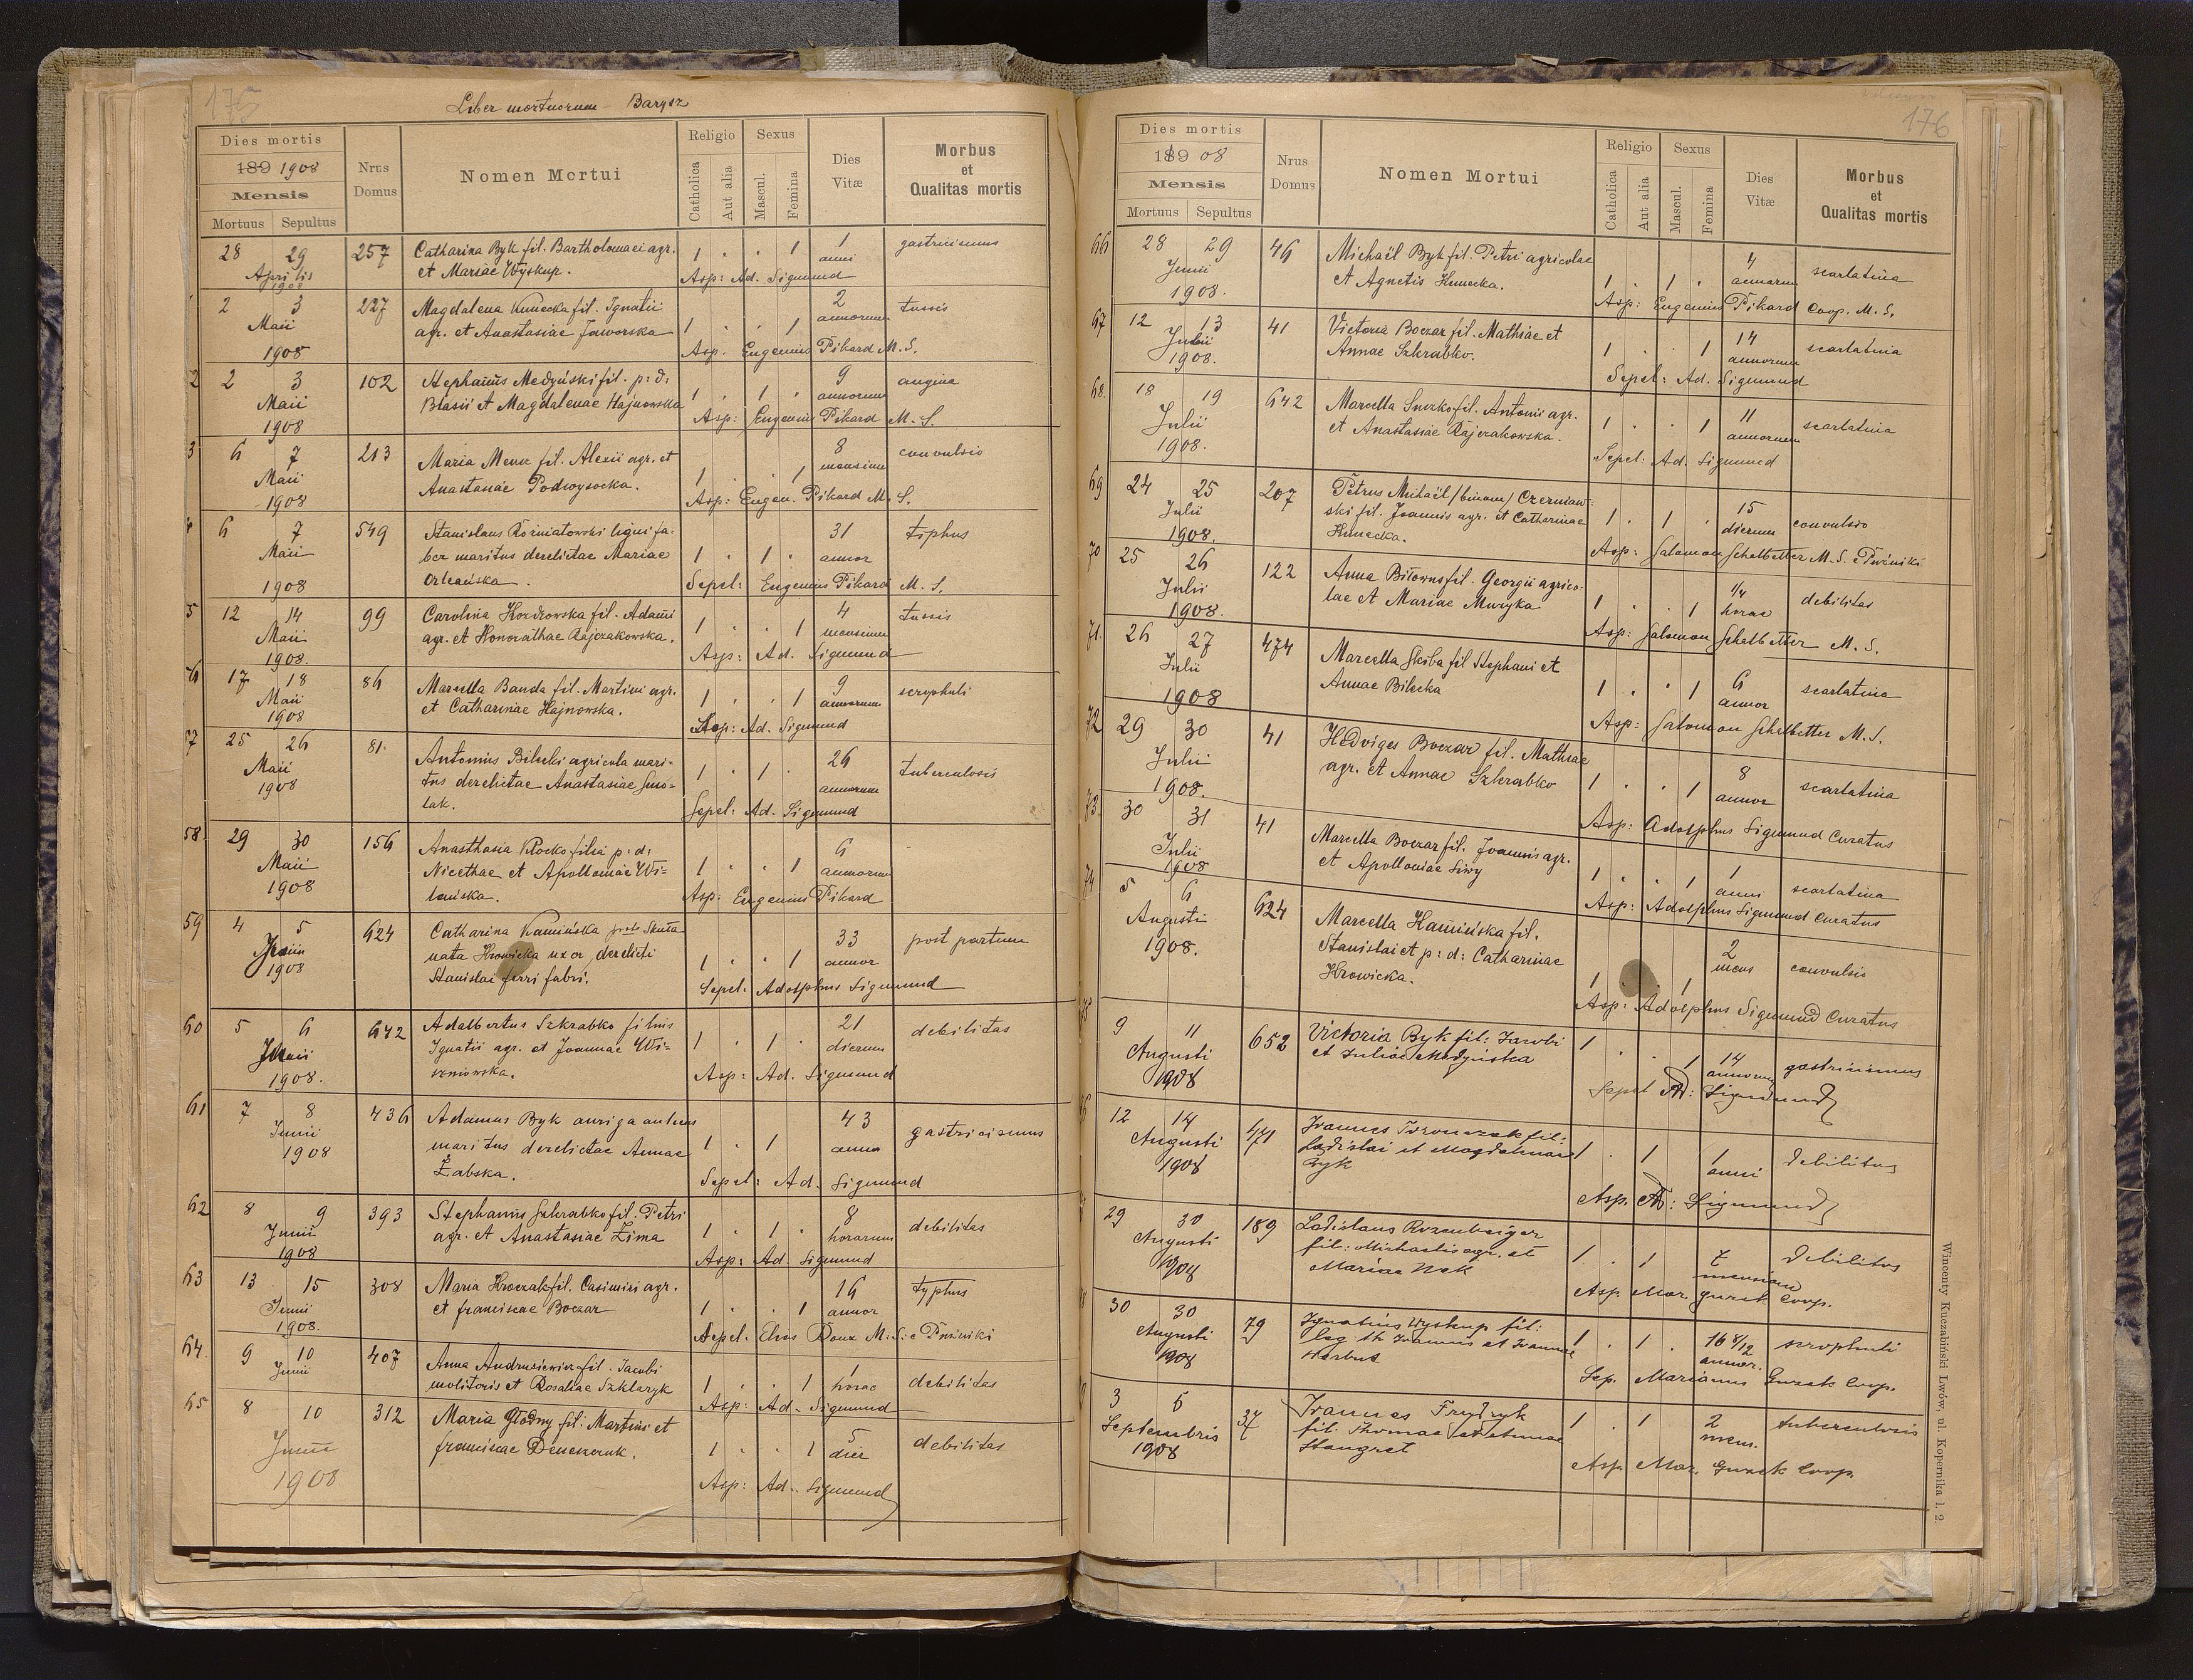 175
Liber mortuorum - Barysz
Dies mortis
189 1908
Mensis
Mortuus Sepultus
Nrus Domus
Nomen Mortui
Religio
Catholica
Aut alia
Sexus
Mascul.
Femina
Dies Vitæ
Morbus et Qualitas mortis
28 29 257 Catharina Byk fil. Bartholomaei agr. 1 . . 1 1 gastricismus
Aprilis et Mariae Wyskup. anni
1908 Asp: Ad. Sigmund
2 3 227 Magdalena Kunecka fil. Ignatii 2 tussis
Maii agr. et Anastasiae Jaworska 1 . . 1 annorum
1908 Asp. Eugenius Pikard M. S.
2 2 3 102 Stephanus Medyński fil. p: d: 9 angina
Maii Blasii et Magdalenae Hajnowska 1 . 1 . annorum
1908 Asp: Eugenius Pikard M. S.
3 6 7 213 Maria Menu fil. Alexii agr. et 8 convulsio
Maii Anastasiae Podwysocka. 1 . . 1 mensium
1908 Asp: Eugen. Pikard M. S.
4 6 7 549 Stanislaus Rożniatowski ligni fa- 31 tiphus
Maii ber maritus derelictae Mariae 1 . 1 . annor
1908 Orleańska. Sepel: Eugenius Pikard M. S.
5 12 14 99 Carolina Kozdrowska fil. Adami 4 tussis
Maii agr. et Honorathae Rajczakowska. 1 . . 1 mensium
1908. Asp: Ad. Sigmund
56 17 18 86 Marcella Banda fil. Martini agr. 1 . . 1 9 scrophuli
Maii et Catharinae Hajnowska. annorum
1908 Asp: Ad. Sigmund
57 25 26 81. Antonius Bilecki agricola mari- 26 tuberculosis
Maii tus derelictae Anastasiae Smo= 1 . 1 . annorum
1908 lak. Sepel: Ad. Sigmund
58 29 30 156 Anasthasia Klocko filia p: d: 6
Maii Nicethae et Apolloniae Wi= 1 . . 1 annorum
1908 laniska. Asp: Eugenius Pikard
59 4 5 624 Catharina Kamińska 33 post partum
Junii nata Krowicka uxor derelicti 1 . . 1 annor
1908 Stanislai ferri fabri. Sepel. Adolphus Sigmund
60 5 6 642 Adalbertus Szkrabko filius 21 debilitas
Junii Ignatii agr. et Joannae Wi= 1 . 1 . dierum
1908. szniowska. Asp: Ad. Sigmund
61 7 8 436 Adamus Byk auriga 43 gastricismus
Junii maritus derelictae Annae 1 . 1 anno
1908 Żabska. Sepel: Ad. Sigmund
62 8 9 393 Stephanus Szkrabko fil. Petri 8 debilitas
Junii agr. et Anastasiae Zima 1 . 1 . horarum
1908 Asp: Ad. Sigmund
63 13 15 308 Maria Kroczak fil. Casimiri agr. 16 typhus
Junii et franciscae Boczar 1 . . 1 annor
1908. Sepel. Elias Doux M: S: e Puźniki
64. 9 10 407 Anna Andrusiewicz fil. Jacobi 1 debilitas
Junii molitoris et Rosaliae Szklaryk 1 . . 1 horae
Asp: Ad. Sigmund
65 8 10 312 Maria Głodny fil: Martini et 5 debilitas
Junii franciscae Deneszczuk. 1 . . 1 dier
1908 Asp: Ad. Sigmund
176
Dies mortis
189 08
Mensis
Mortuus Sepultus
Nrus Domus
Nomen Mortui
Religio
Catholica
Aut alia
Sexus
Mascul.
Femina
Dies Vitæ
Morbus et Qualitas mortis
66 28 29 46 Michaël Byk fil. Petri agricolae 4 scarlatina
Junii et Agnetis Kunecka. 1 . 1 . annorum
1908. Asp: Eugenius Pikard Coop. M. S.
67 12 13 41 Victoria Boczar fil. Mathiae et 14 scarlatina
Julii Annae Szkrabko. 1 . . 1 annorum
1908. Sepel: Ad. Sigmund
68. 18 19 642 Marcella Suszko fil. Antonii agr. 11 scarlatina
Julii et Anastasiae Rajczakowska. 1 . . 1 annorum
1908. Sepel: Ad. Sigmund
69 24 25 207 Petrus Michaël /binom/ Czerniaw- 15 convulsio
Julii ski fil. Joannis agr. et Catharinae 1 . 1 . dierum
1908. Kunecka. Asp: Salomon Schelbetter M. S. e Puźniki
70 25 26 122 Anna Biłowus fil. Georgii agrico- 1/4 debilitas
Julii lae et Mariae Muzyka 1 . . 1 horae
1908. Asp: Salomon Schelbetter M. S.
71. 26 27 474 Marcella Skiba fil Stephani et 6 scarlatina
Julii Annae Bilecka 1 . . 1 annor
1908 Asp: Salomon Schelbetter M. S.
72 29 30 41 Hedviges Boczar fil. Mathiae 8 scarlatina
Julii agr. et Annae Szkrabko 1 . . 1 annor
1908. Asp: Adolphus Sigmund Curatus
73. 30 31 41 Marcella Boczar fil. Joannis agr. 1 scarlatina
Julii et Apolloniae Siwy 1 . . 1 anni
1908 Asp: Adolphus Sigmund Curatus
74 5 6 624 Marcella Kamińska fil. 2 convulsio
Augusti Stanislai et p: d: Catharinae 1 1 mens
1908. Krowicka. Asp: Adolphus Sigmund Curatus
9 11 652 Victoria Byk fil: Jacobi 1 . . 1 14 gastricismus
Augusti et Juliae Medyńska annorum
1908 Sepel Ad: Sigmund
12 14 471 Joannes fil: 1 debilitas
Augusti Ladislai et Magdalenae 1 . 1 anni
1908 Byk Asp. Ad: Sigmund
29 30 189 Ladislaus Rozenberger 7 debilitas
Augusti fil: Michaelis agr. et 1 . 1 mensium
1908 Mariae Asp Mar. Guzek Coop.
30 30 79 Ignatius Wyskup fil: 16 8/12 scrophuli
Augusti leg. th Joannis et Joannae 1 . 1 . annor.
1908 Sep. Marianus Guzek Coop.
3 5 37 Joannes Frydryk 2 tuberculosis
Septembris fil. Thomae et Annae 1 . 1 mens.
1908 Stangret Asp Mar. Guzek Coop.
Wincenty Kuczabiński Lwów, ul. Kopernika l. 2.